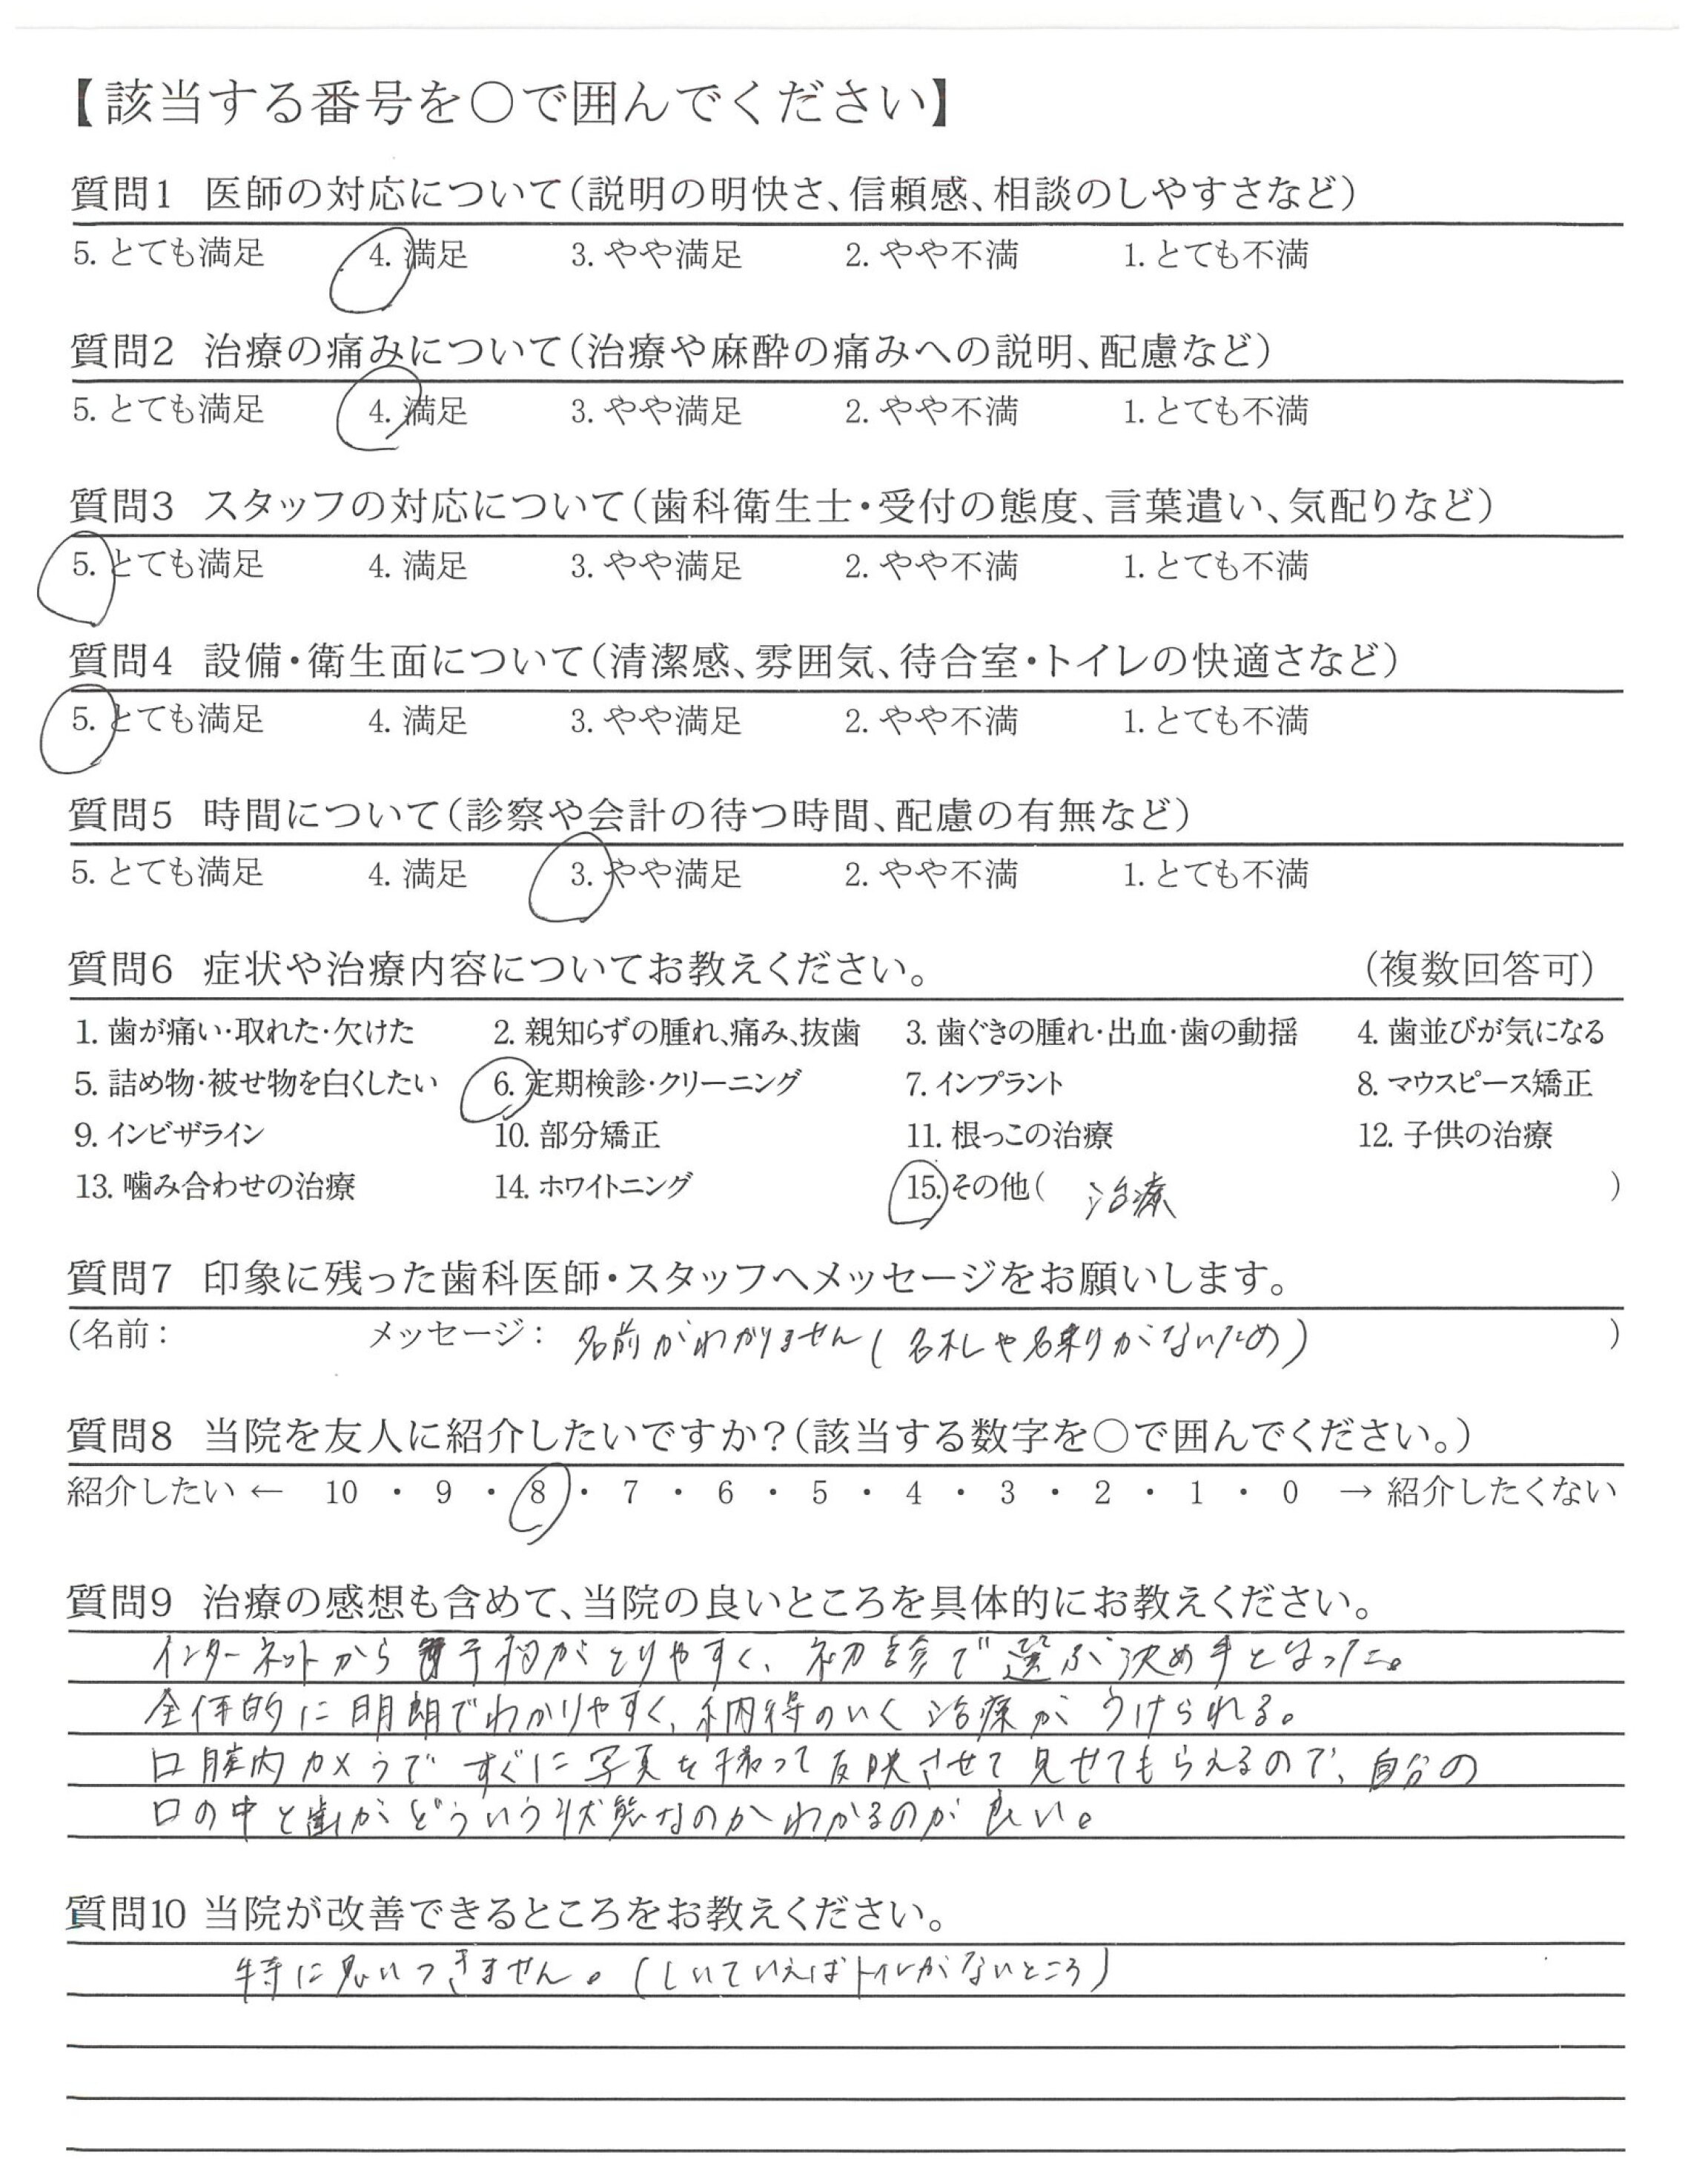 【該当する番号を○で囲んでください】
質問1 医師の対応について(説明の明快さ、信頼感、相談のしやすさなど)
5. とても満足 4. 満足 3. やや満足 2. やや不満 1. とても不満
質問2 治療の痛みについて(治療や麻酔の痛みへの説明、配慮など)
5. とても満足 4. 満足 3. やや満足 2. やや不満 1. とても不満
質問3 スタッフの対応について(歯科衛生士・受付の態度、言葉遣い、気配りなど)
5. とても満足 4. 満足 3. やや満足 2. やや不満 1. とても不満
質問4 設備・衛生面について(清潔感、雰囲気、待合室・トイレの快適さなど)
5. とても満足 4. 満足 3. やや満足 2. やや不満 1. とても不満
質問5 時間について(診察や会計の待つ時間、配慮の有無など)
5. とても満足 4. 満足 3. やや満足 2. やや不満 1. とても不満
質問6 症状や治療内容についてお教えください。 (複数回答可)
1. 歯が痛い・取れた・欠けた 2. 親知らずの腫れ、痛み、抜歯 3. 歯ぐきの腫れ・出血・歯の動揺 4. 歯並びが気になる
5. 詰め物・被せ物を白くしたい 6. 定期検診・クリーニング 7. インプラント 8. マウスピース矯正
9. インビザライン 10. 部分矯正 11. 根っこの治療 12. 子供の治療
13. 噛み合わせの治療 14. ホワイトニング 15. その他( 治療 )
質問7 印象に残った歯科医師・スタッフへメッセージをお願いします。
(名前: メッセージ: 名前がわかりません(名札や名乗りがないため) )
質問8 当院を友人に紹介したいですか?(該当する数字を○で囲んでください。)
紹介したい ← 10 ・ 9 ・ 8 ・ 7 ・ 6 ・ 5 ・ 4 ・ 3 ・ 2 ・ 1 ・ 0 → 紹介したくない
質問9 治療の感想も含めて、当院の良いところを具体的にお教えください。
インターネットから予約がとりやすく、初診で選ぶ決め手となった。
全体的に明朗でわかりやすく、納得のいく治療がうけられる。
口腔内カメラですぐに写真を撮って反映させて見せてもらえるので、自分の
口の中と歯がどういう状態なのかわかるのが良い。
質問10 当院が改善できるところをお教えください。
特に思いつきません。(しいていえばトイレがないところ)